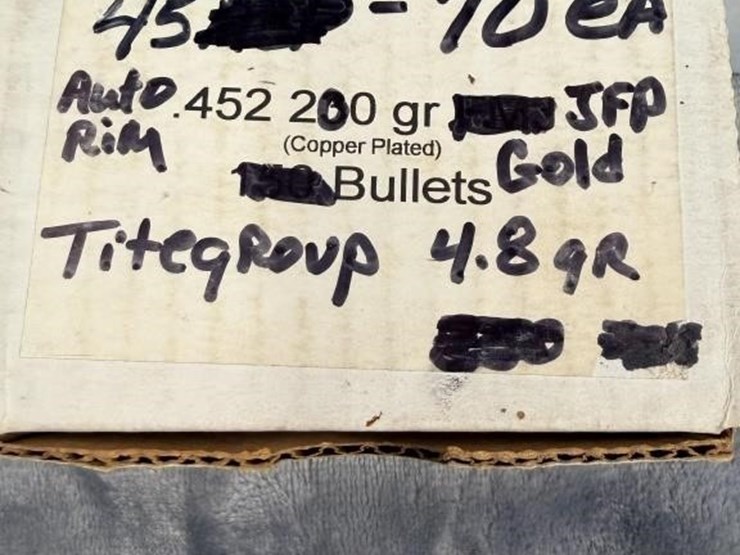 45 - 70 EA
Auto .452 200 gr JFP
Rim (Copper Plated) Gold
Bullets
Titegroup 4.8 gR